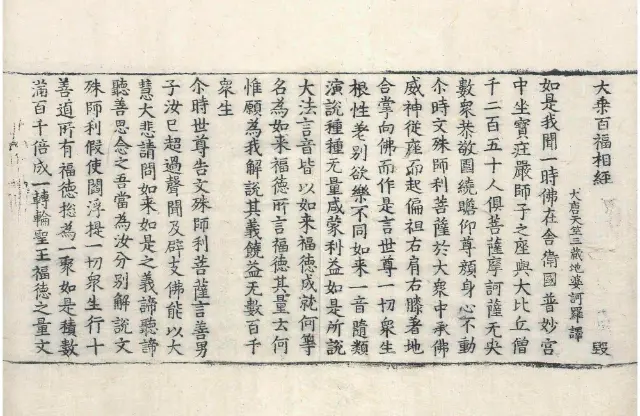 大乘百福相經
大唐天竺三藏地婆訶羅譯 毀
如是我聞一時佛在舍衛國普妙宮
中坐寶莊嚴師子之座與大比丘僧
千二百五十人俱菩薩摩訶薩无央
數衆恭敬圍繞瞻仰尊顏身心不動
尒時文殊師利菩薩於大衆中承佛
威神從座而起偏袒右肩右膝著地
合掌向佛而作是言世尊一切衆生
根性差別欲樂不同如來一音隨類
演說種種无量咸蒙利益如是所說
大法言音皆以如來福德成就何等
名為如來福德所言福德其量云何
惟願為我解說其義饒益无數百千
衆生
尒時世尊告文殊師利菩薩言善男
子汝已超過聲聞及辟支佛能以大
慧大悲請問如來如是之義諦聽諦
聽善思念之吾當為汝分別解說文
殊師利假使閻浮提一切衆生行十
善道所有福德揔為一聚如是積數
滿百千倍成一轉輪聖王福德之量文